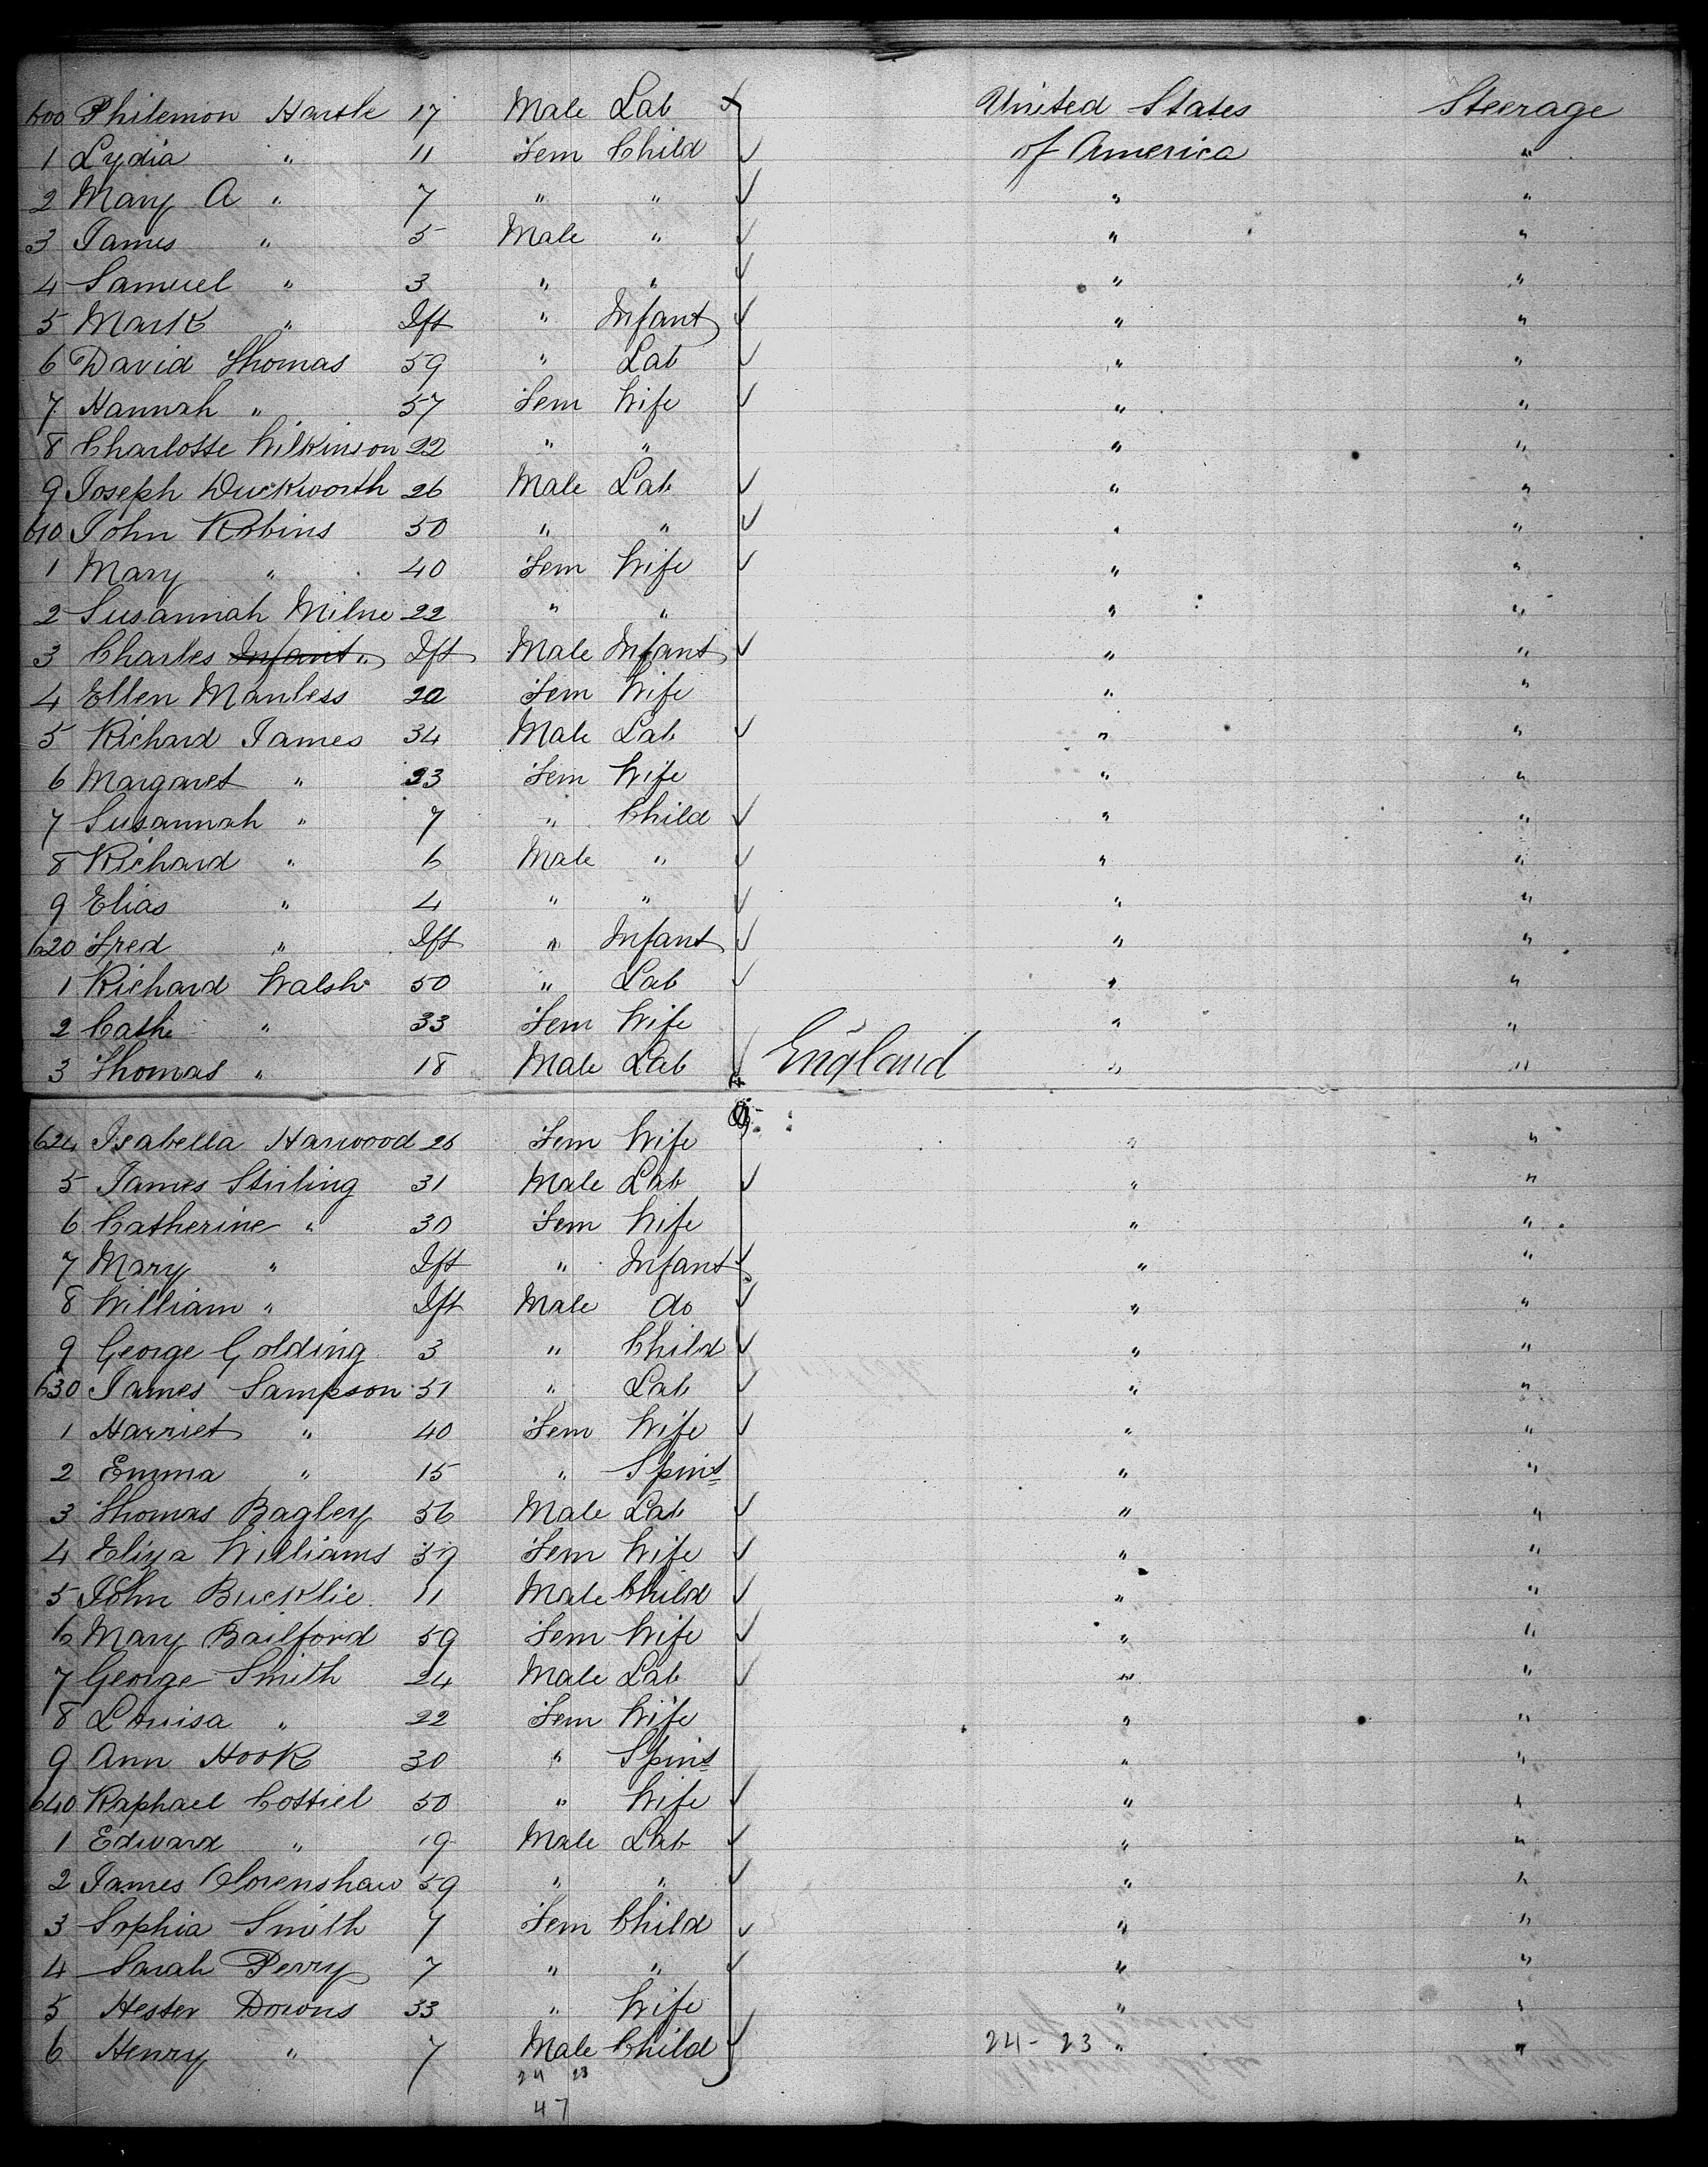 600 Philemon Hartle 17 Male Lab United States Steerage
1 Lydia " 11 Fem Child of America "
2 Mary A " 7 " " " "
3 James " 5 Male " " "
4 Samuel " 3 " " " "
5 Mark " Ift " Infant " "
6 David Thomas 59 " Lab " "
7 Hannah " 57 Fem Wife " "
8 Charlotte Wilkinson 22 " " " "
9 Joseph Duckworth 26 Male Lab " "
610 John Robins 50 " " " "
1 Mary " 40 Fem Wife " "
2 Susannah Milne 22 " " " "
3 Charles Infant " Ift Male Infant " "
4 Ellen Manless 20 Fem Wife " "
5 Richard James 34 Male Lab " "
6 Margaret " 23 Fem Wife " "
7 Susannah " 7 " Child " "
8 Richard " 6 Male " " "
9 Elias " 4 " " " "
620 Fred " Ift " Infant " "
1 Richard Walsh 50 " Lab " "
2 Cathe " 33 Fem Wife " "
3 Thomas " 18 Male Lab England " "
624 Isabella Harwood 26 Fem Wife " "
5 James Stirling 31 Male Lab " "
6 Catherine " 30 Fem Wife " "
7 Mary " Ift " Infant " "
8 William " Ift Male do " "
9 George Golding 3 " Child " "
630 James Sampson 51 " Lab " "
1 Harriet " 40 Fem Wife " "
2 Emma " 15 " Spinst " "
3 Thomas Bagley 56 Male Lab " "
4 Eliza Williams 39 Fem Wife " "
5 John Bucklie 11 Male Child " "
6 Mary Bailford 59 Fem Wife " "
7 George Smith 24 Male Lab " "
8 Louisa " 22 Fem Wife " "
9 Ann Hook 30 " Spinst " "
640 Raphael Cottiel 50 " Wife " "
1 Edward " 19 Male Lab " "
2 James 59 " " " "
3 Sophia Smith 7 Fem Child " "
4 Sarah Perry 7 " " " "
5 Hester Downs 33 " Wife " "
6 Henry " 7 Male Child 24-23 " "
24 23
47